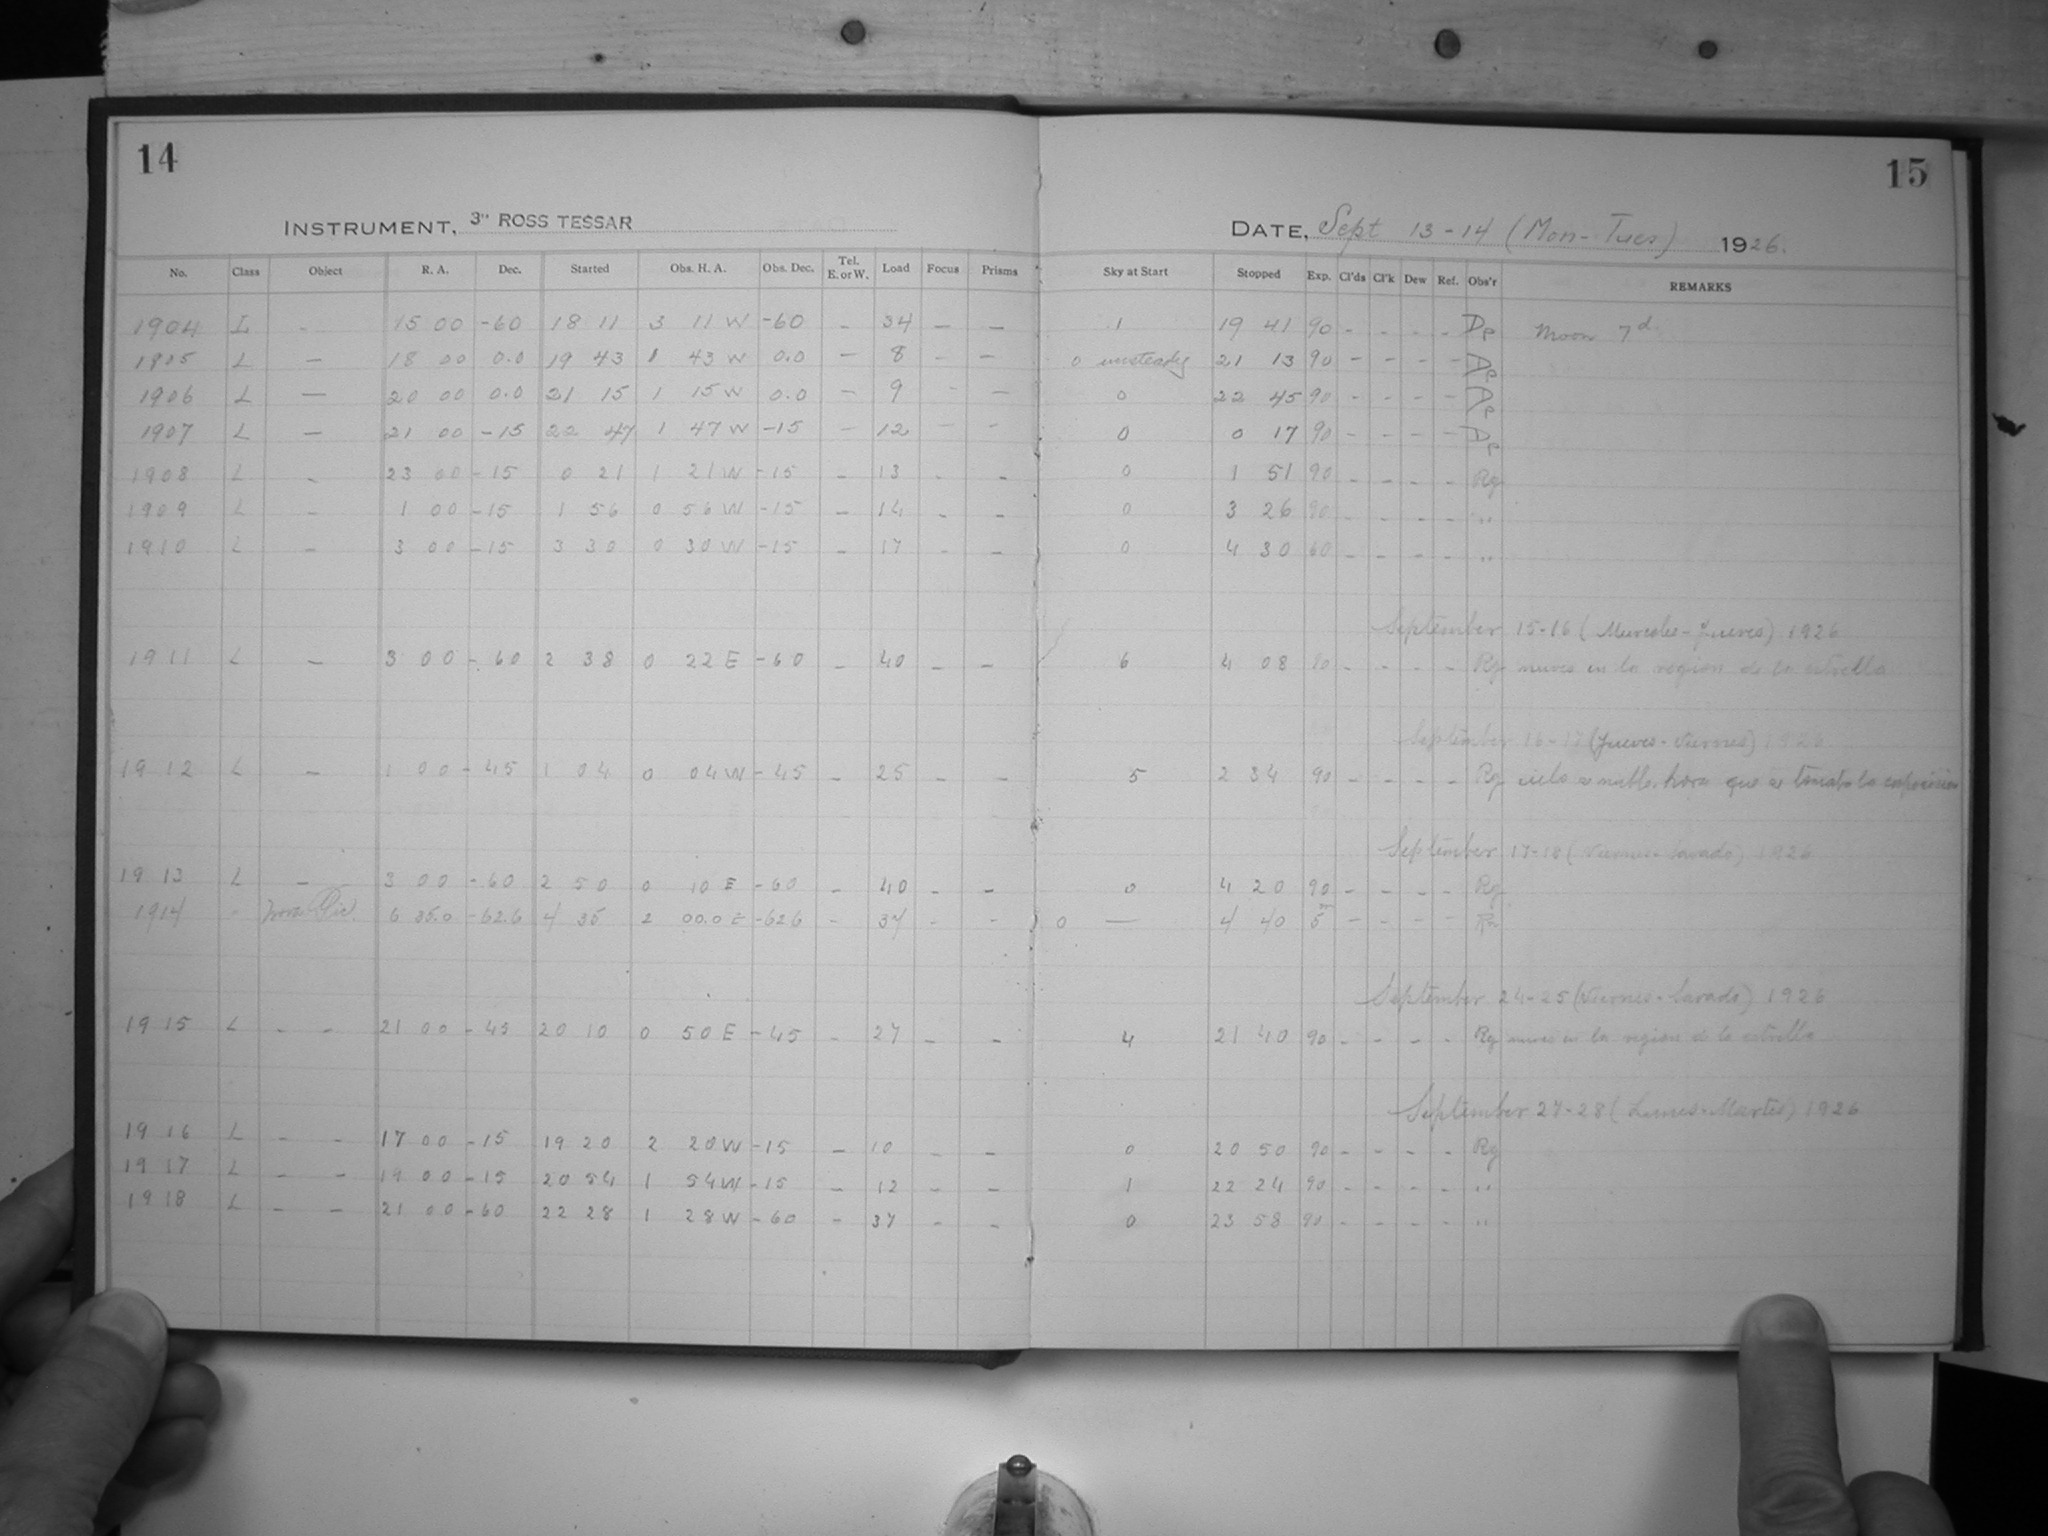 14
15
INSTRUMENT, 3" ROSS TESSAR
DATE, Sept 13-14 (Mon-Tues) 1926.
No. Class Object R. A. Dec. Started Obs. H. A. Obs. Dec. Tel. E. or W. Load Focus Prisms Sky at Start Stopped Exp. Cl'ds Cl'k Dew Ref. Obs'r REMARKS
1904 L - 15 00 -60 18 11 3 11 W -60 - 34 - - 1 19 41 90 - - - - Moon 7d
1905 L - 18 00 0.0 19 43 1 43 W 0.0 - 8 - - 0 unsteady 21 13 90 - - - -
1906 L - 20 00 0.0 21 15 1 15 W 0.0 - 9 - - 0 22 45 90 - - - -
1907 L - 21 00 -15 22 47 1 47 W -15 - 12 - - 0 0 17 90 - - - -
1908 L - 23 00 -15 0 21 1 21 W -15 - 13 - - 0 1 51 90 - - - - Rg
1909 L - 1 00 -15 1 56 0 56 W -15 - 14 - - 0 3 26 90 - - - - "
1910 L - 3 00 -15 3 30 0 30 W -15 - 17 - - 0 4 30 60 - - - - "
September 15-16 (Miercoles-Jueves) 1926
1911 L - 3 00 -60 2 38 0 22 E -60 - 40 - - 6 4 08 90 - - - - Rg nuves en la region de la estrella
September 16-17 (Jueves-Viernes) 1926
1912 L - 1 00 -45 1 04 0 04 W -45 - 25 - - 5 2 34 90 - - - - Rg cielo se nublo hora que se tomaba la exposicion
September 17-18 (Viernes-Savado) 1926
1913 L - 3 00 -60 2 50 0 10 E -60 - 40 - - 0 4 20 90 - - - - Rg
1914 - Nova Pic. 6 35.0 -62.6 4 35 2 00.0 E -62.6 - 37 - - 0 — 4 40 5m - - - -
September 24-25 (Viernes-Savado) 1926
1915 L - - 21 00 -45 20 10 0 50 E -45 - 27 - - 4 21 40 90 - - - - Rg nuves en la region de la estrella
September 27-28 (Lunes-Martes) 1926
1916 L - - 17 00 -15 19 20 2 20 W -15 - 10 - - 0 20 50 90 - - - - Rg
1917 L - - 19 00 -15 20 54 1 54 W -15 - 12 - - 1 22 24 90 - - - - "
1918 L - - 21 00 -60 22 28 1 28 W -60 - 37 - - 0 23 58 90 - - - - "